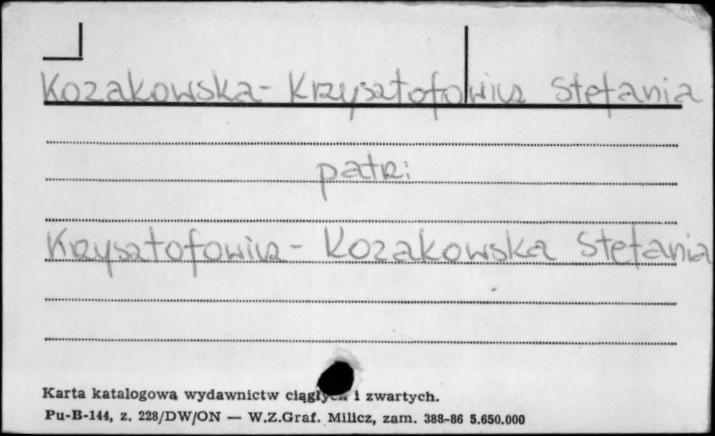 Kozakowska-Krzysztofowicz Stefania
patrz:
Krzysztofowicz-Kozakowska Stefania
Karta katalogowa wydawnictw ciągłych i zwartych.
Pu-B-144, z. 228/DW/ON — W.Z.Graf. Milicz, zam. 388-86 5.650.000